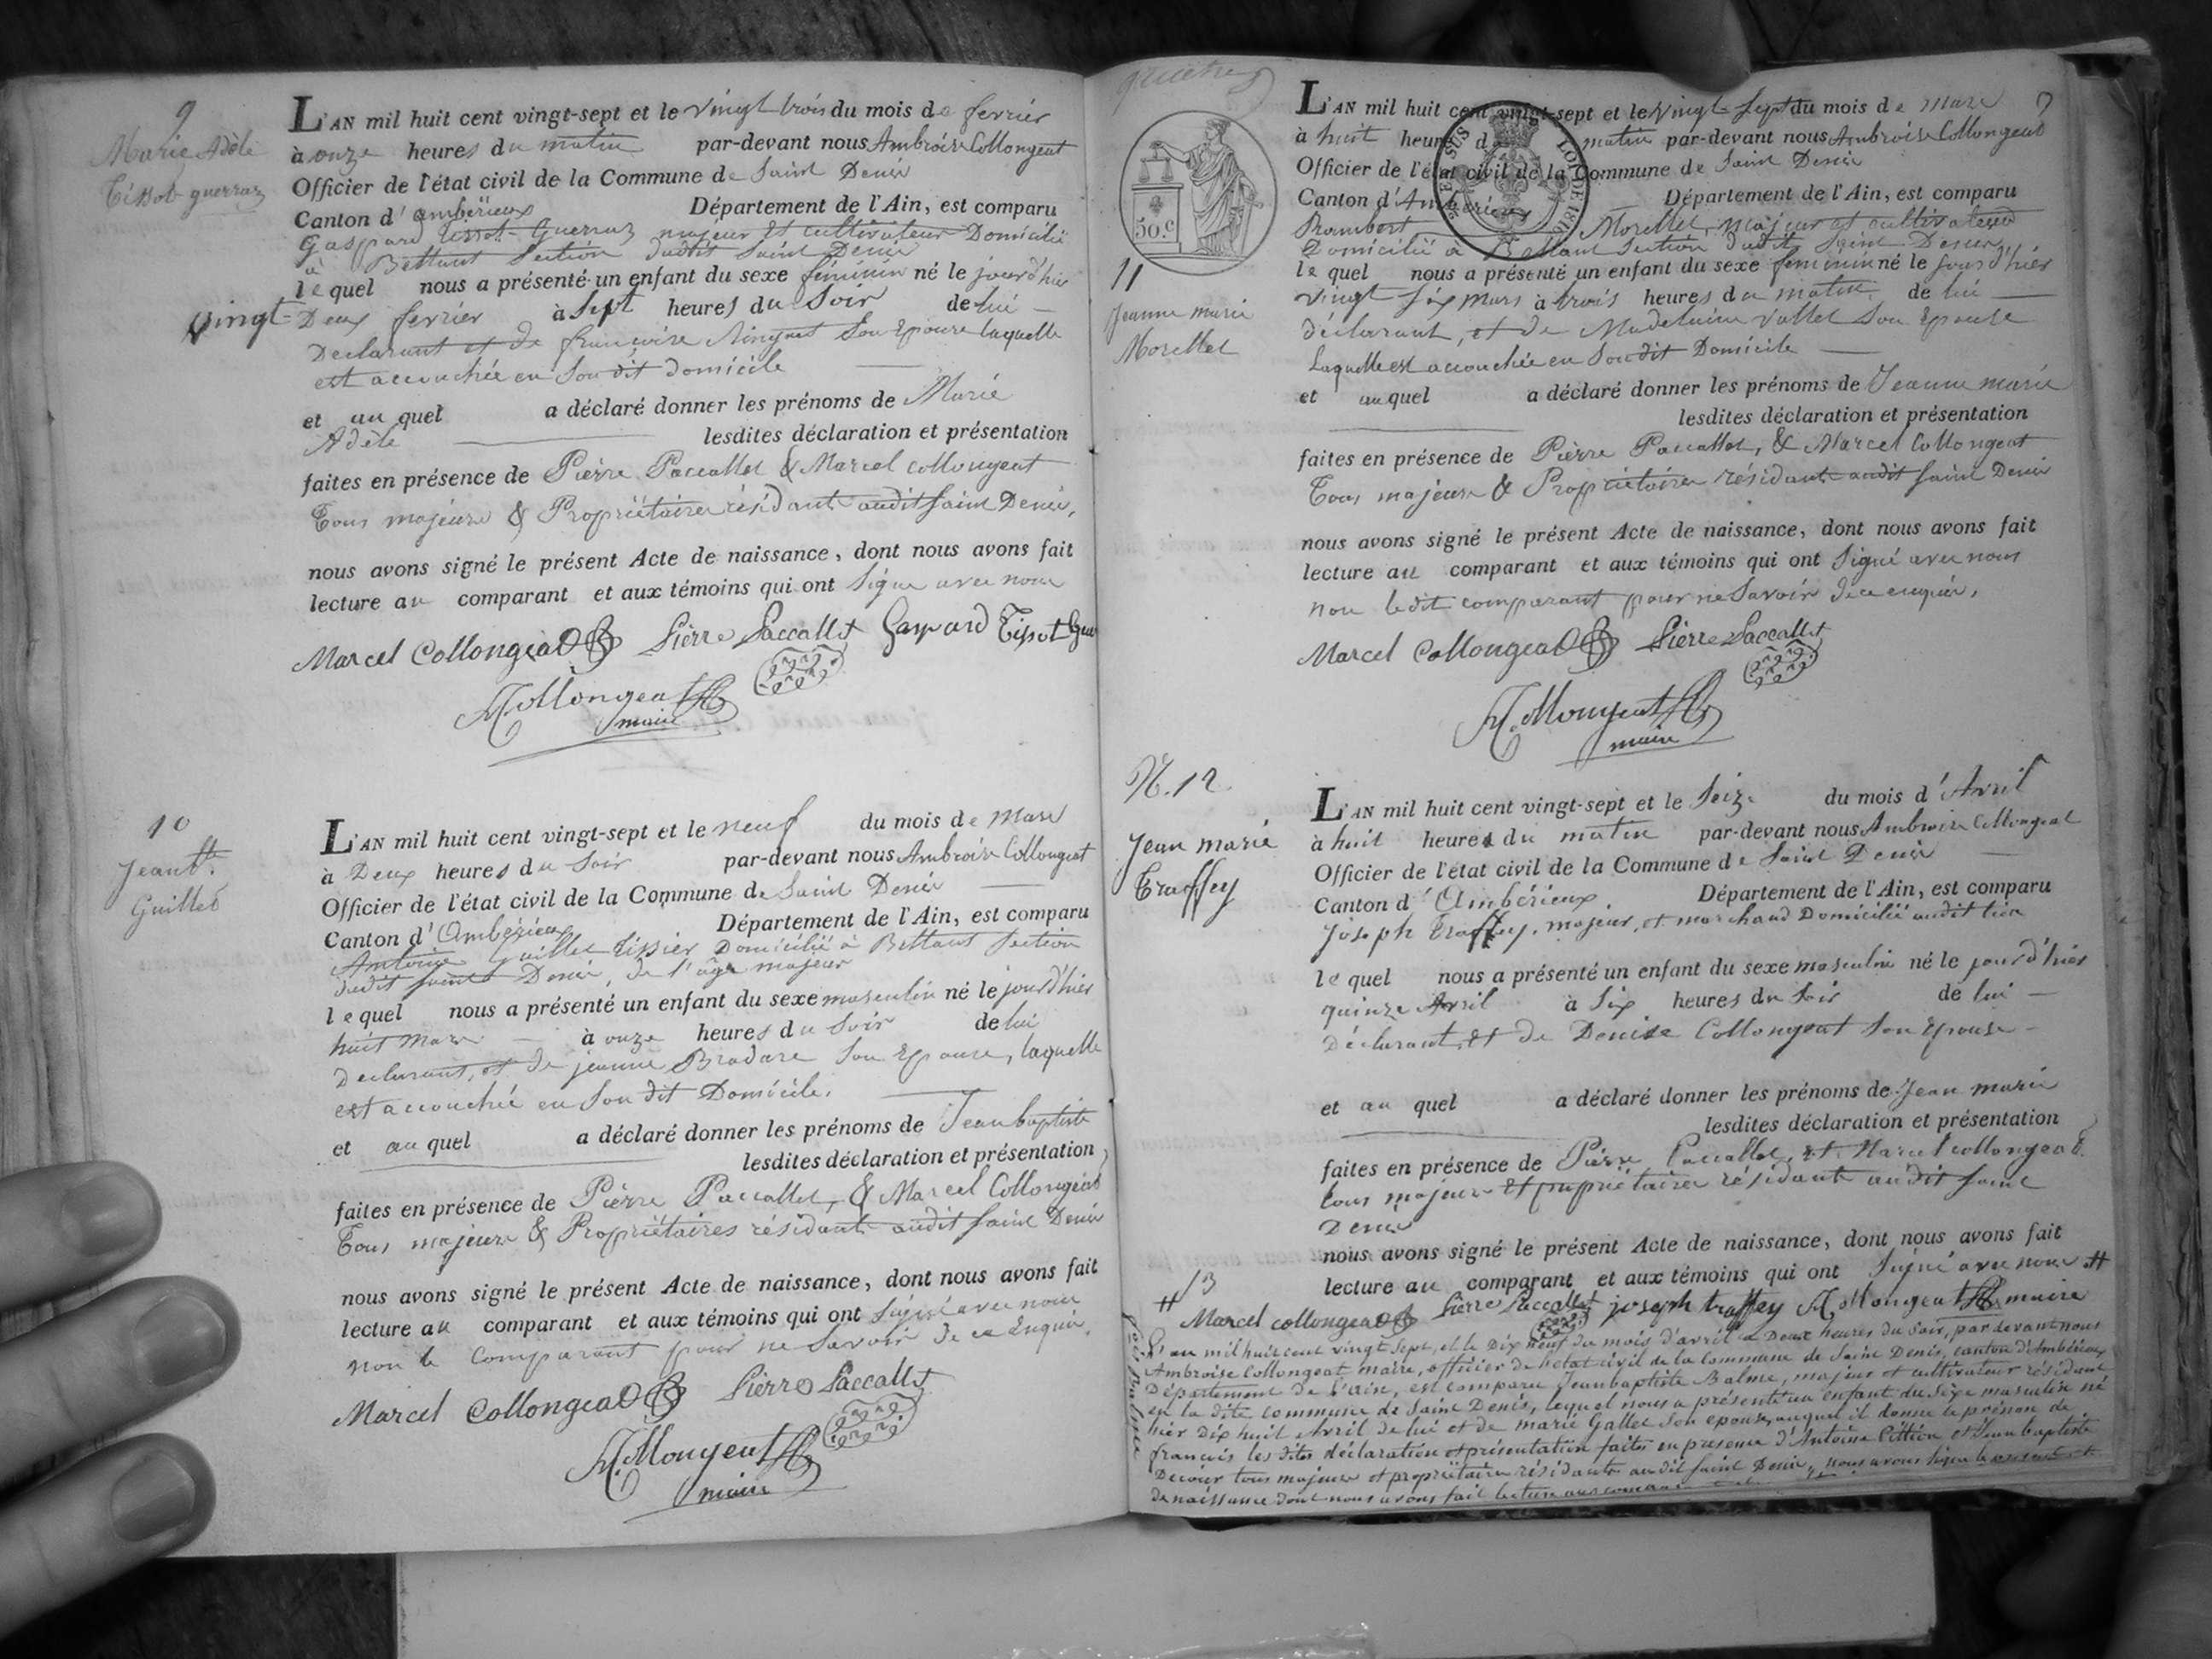 9
Marie Adèle
Tissot guerraz
L'AN mil huit cent vingt-sept et le vingt trois du mois de fevrier
à onze heures du matin par-devant nous Ambroise Collongeat
Officier de l'état civil de la Commune de Saint Denis
Canton d'ambérieux Département de l'Ain, est comparu
Gaspard tissot Guerraz majeur et cultivateur Domicilié
à Bettant Section dudit Saint Denis
lequel nous a présenté un enfant du sexe féminin né le jourd'hier
vingt-Deux fevrier à Sept heures du Soir de lui
Declarant et de françoise Son Epouse laquelle
est accouchée en Son dit domicile
et au quel a déclaré donner les prénoms de Marie
Adèle lesdites déclaration et présentation
faites en présence de Pierre Paccallet & Marcel collongeat
Tous majeurs & Propriétaires résidants audit Saint Denis,
nous avons signé le présent Acte de naissance, dont nous avons fait
lecture au comparant et aux témoins qui ont Signé avec nous
Marcel Collongeat Pierre Paccallet Gaspard Tissot Gue
A. Collongeat
maire
10
Jean Bte
Guillet
L'AN mil huit cent vingt-sept et le neuf du mois de Mars
à Deux heures du Soir par-devant nous Ambroise Collongeat
Officier de l'état civil de la Commune de Saint Denis
Canton d'Ambérieux Département de l'Ain, est comparu
Antoine Guillet tissier Domicilié à Bettant Section
dudit Saint Denis, de l'âge majeur
lequel nous a présenté un enfant du sexe masculin né le jourd'hier
huit Mars à onze heures du Soir de lui
Declarant, et de jeanne Bradare Son Epouse, laquelle
est accouchée en Son dit Domicile.
et au quel a déclaré donner les prénoms de Jean baptiste
lesdites déclaration et présentation
faites en présence de Pierre Paccallet, & Marcel Collongeat
Tous majeurs & Propriétaires résidants audit Saint Denis
nous avons signé le présent Acte de naissance, dont nous avons fait
lecture au comparant et aux témoins qui ont Signé avec nous
non le Comparant pour ne Savoir de ce Enquis.
Marcel Collongeat Pierre Paccallet
A. Collongeat
maire
7
50.c
11
Jeanne marie
Morellet
L'AN mil huit cent vingt-sept et le vingt-Sept du mois de mars
à huit heures du matin par-devant nous Ambroise Collongeat
Officier de l'état civil de la Commune de Saint Denis
Canton d'Ambérieux Département de l'Ain, est comparu
Rambert Morellet, majeur et cultivateur
Domicilié à Bettant Section dudit Saint Denis,
lequel nous a présenté un enfant du sexe feminin né le jourd'hier
vingt Six mars à trois heures du matin de lui
déclarant, et de Madelaine vallet Son Epouse
Laquelle est accouchée en Son dit Domicile
et au quel a déclaré donner les prénoms de Jeanne marie
lesdites déclaration et présentation
faites en présence de Pierre Paccallet, & Marcel Collongeat
Tous majeurs & Propriétaires résidants audit Saint Denis
nous avons signé le présent Acte de naissance, dont nous avons fait
lecture au comparant et aux témoins qui ont Signé avec nous
non ledit comparant pour ne Savoir de ce enquis,
Marcel Collongeat Pierre Paccallet
A. Collongeat
maire
N. 12
Jean marie
Traffey
L'AN mil huit cent vingt-sept et le Seize du mois d'Avril
à huit heures du matin par-devant nous Ambroise Collongeat
Officier de l'état civil de la Commune de Saint Denis
Canton d'Ambérieux. Département de l'Ain, est comparu
Joseph Traffey, majeur, et marchand Domicilié audit lieu
lequel nous a présenté un enfant du sexe masculin né le jourd'hier
quinze Avril à Six heures du Soir de lui
Déclarant, et de Denise Collongeat Son Epouse
et au quel a déclaré donner les prénoms de Jean marie
lesdites déclaration et présentation
faites en présence de Pierre Paccallet, et Marcel collongeat
tous majeurs et propriétaires résidants audit Saint
Denis
nous avons signé le présent Acte de naissance, dont nous avons fait
lecture au comparant et aux témoins qui ont Signé avec nous #
Marcel collongeat Pierre Paccallet joseph traffey A. Collongeat maire
# 13
L'an mil huit cent vingt Sept, et le Dix neuf du mois d'avril à Deux heures du Soir, par devant nous
Ambroise Collongeat maire, officier de l'etat civil de la Commune de Saint Denis, canton d'Ambérieux
Département de l'ain, est comparu Jean baptiste Balme, majeur et cultivateur résidant
en la dite commune de Saint Denis, lequel nous a présenté un enfant du Sexe masculin né
hier Dix huit Avril de lui et de marie Gallet Son epouse, auquel il donne le prénom de
françois les dites déclaration et présentation faites en presence d'Antoine Pittion et Jean baptiste
Decour tous majeurs et propriétaires résidants audit Saint Denis, nous avons Signé le present acte
de naissance dont nous avons fait lecture aux